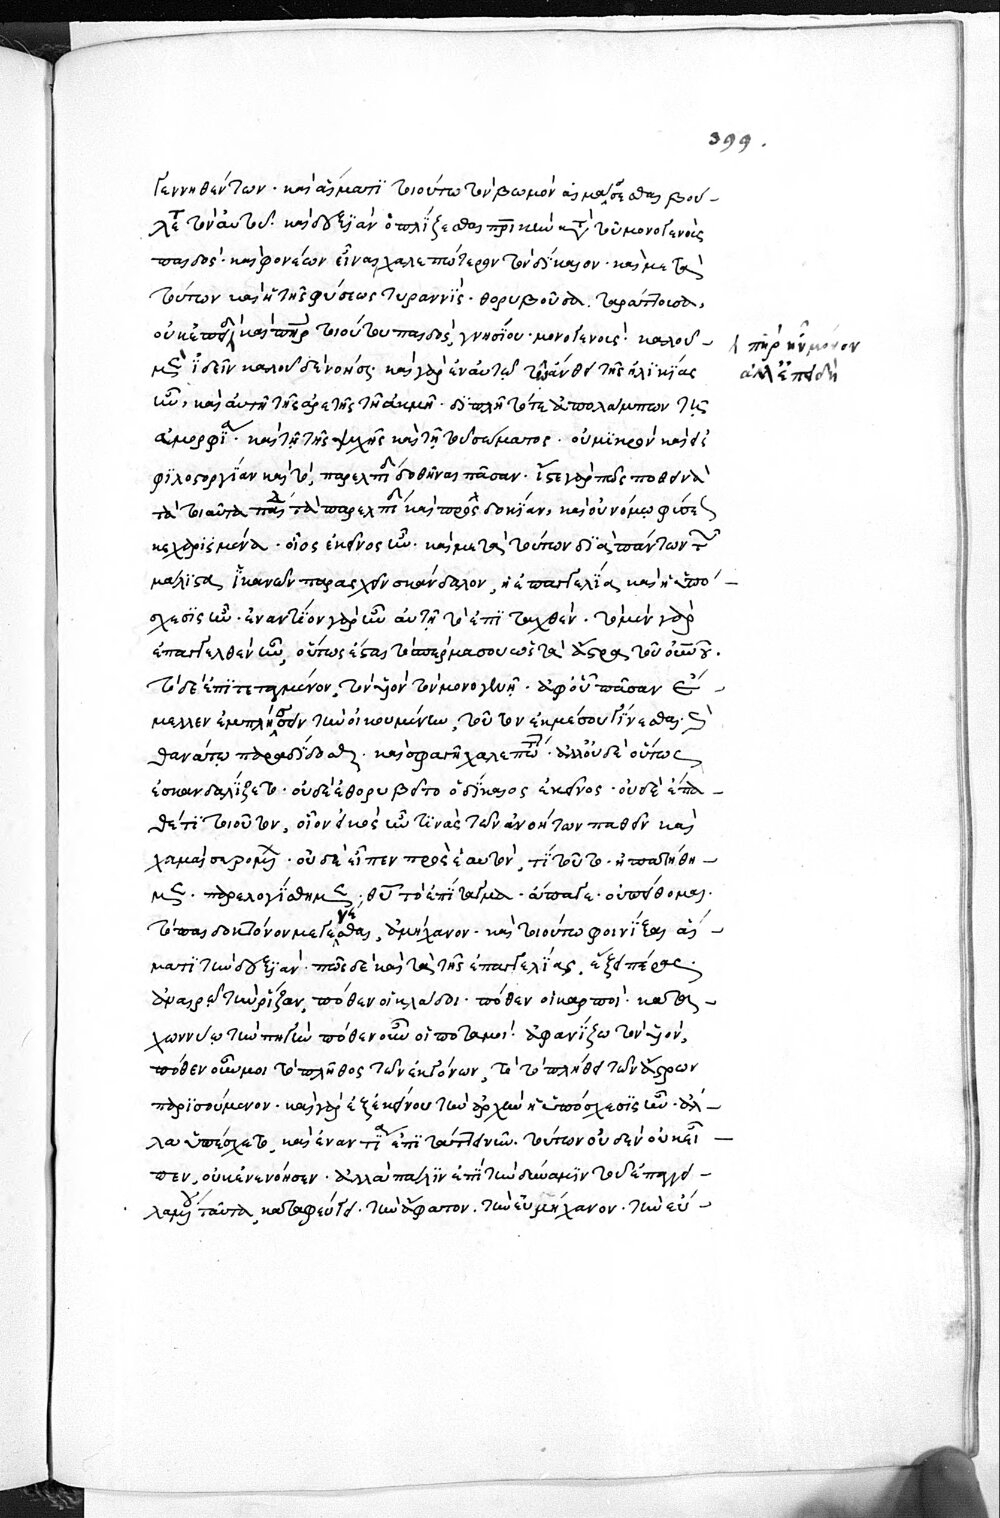 399.
γεννηθέντων. καὶ αἵματι τοιούτω τὸν βωμὸν αἱμάξεσθαι βού-
λεται τὸν αὐτοῦ. καὶ δεξιὰν ὁπλίζεσθαι κατὰ τοῦ μονογενοῦς
παιδός. καὶ φονέων εἶναι χαλεπώτερον τὸν δίκαιον. καὶ μετὰ
τούτων καὶ ἡ τῆς φύσεως τυραννὶς. θορυβοῦσα. ταράττουσα,
οὐκ ἐπειδὴ καὶ πατὴρ τοιούτου παιδὸς, γνησίου. μονογενοῦς. καλοῦ
πατὴρ ἦν μόνον
ἀλλ' ἐπειδὴ
μὲν ἰδεῖν καλοῦ δὲ νοῆσαι. καὶ γὰρ ἐν αὐτῶ τῶ ἄνθει τῆς ἡλικίας
ὢν, καὶ αὐτῆ τῆς ἀρετῆς τῆ ἀκμῆ. διπλῆ τότε ἀπολάμπων τῆ
εὐμορφία. καὶ τῆ τῆς ψυχῆς καὶ τῆ τοῦ σώματος. οὐ μικρὸν καὶ εἰς
φιλοστοργίαν καὶ τὸ, παρ' ἐλπίδα δοθῆναι πᾶσαν. ἴστε γὰρ πῶς ποθεινὰ
τὰ τοιαῦτα παιδία τὰ παρ' ἐλπίδα καὶ προσδοκίαν, καὶ οὐ νόμω φύσεως
κεχαρισμένα. οἷος ἐκεῖνος ἦν. καὶ μετὰ τούτων διαπάντων τὸ
μάλιστα ἱκανὸν παρασχεῖν σκάνδαλον, ἡ ἐπαγγελία καὶ ἡ ὑπό-
σχεσις ἦν. ἐναντίον γὰρ ἦν αὐτῆ τὸ ἐπιταχθέν. τὸ μὲν γὰρ
ἐπαγγελθὲν ἦν, οὕτως ἔσται τὸ σπέρμα σου ὡς τὰ ἄστρα τοῦ οὐρανοῦ.
τὸ δὲ ἐπιτεταγμένον, τὸν υἱὸν τὸν μονογενῆ. ἀφ' οὗ πᾶσαν ἔ-
μελλεν ἐμπλήσειν τὴν οἰκουμένην, τοῦτον ἐκ μέσου γίνεσθαι. καὶ
θανάτω παραδίδοσθαι. καὶ σφαγῆ χαλεπωτάτη. ἀλλ' οὐδὲ οὕτως
ἐσκανδαλίζετο. οὐδὲ ἐθορυβεῖτο ὁ δίκαιος ἐκεῖνος. οὐδὲ ἔπα-
θέ τι τοιοῦτον, οἷον εἰκὸς ἦν τινὰς τῶν ἀνοήτων παθεῖν καὶ
χαμαὶ συρομένων. οὐδὲ εἶπεν πρὸς ἑαυτόν, τί τοῦτο. ἠπατήθη-
μεν. παρελογίσθημεν; θεοῦ τὸ ἐπίταγμα. ἄπαγε. οὐ πείθομαι.
τὸ παιδοκτόνον με γενέσθαι, ἀμήχανον. καὶ τοιούτω φοινίξαι αἵ-
ματι τὴν δεξιάν. πῶς δὲ καὶ τὰ τῆς ἐπαγγελίας, ἕξει πέρας.
ἀναιρῶ τὴν ῥίζαν, πόθεν οἱ κλάδοι. πόθεν οἱ καρποί. κατα-
χωννύω τὴν πηγὴν πόθεν οὖν οἱ ποταμοί. ἀφανίζω τὸν υἱὸν,
πόθεν οὖν μοι τὸ πλῆθος τῶν ἐκγόνων, τὸ τὸ πλήθει τῶν ἄστρων
παρισούμενον. καὶ γὰρ ἐξ ἐκείνου τὴν ἀρχὴν ἡ ὑπόσχεσις ἦν. ἀλ-
λὰ ὑπέσχετο, καὶ ἐναντία ἐπιτάττει νῦν. τούτων οὐδὲν οὐκ εἶ-
πεν, οὐκ ἐνενόησεν. ἀλλὰ πάλιν ἐπὶ τὴν δύναμιν τοῦ ἐπαγγει-
λαμένου ταῦτα, καταφεύγει. τὴν ἄφατον. τὴν εὐμήχανον. τὴν εὔ-